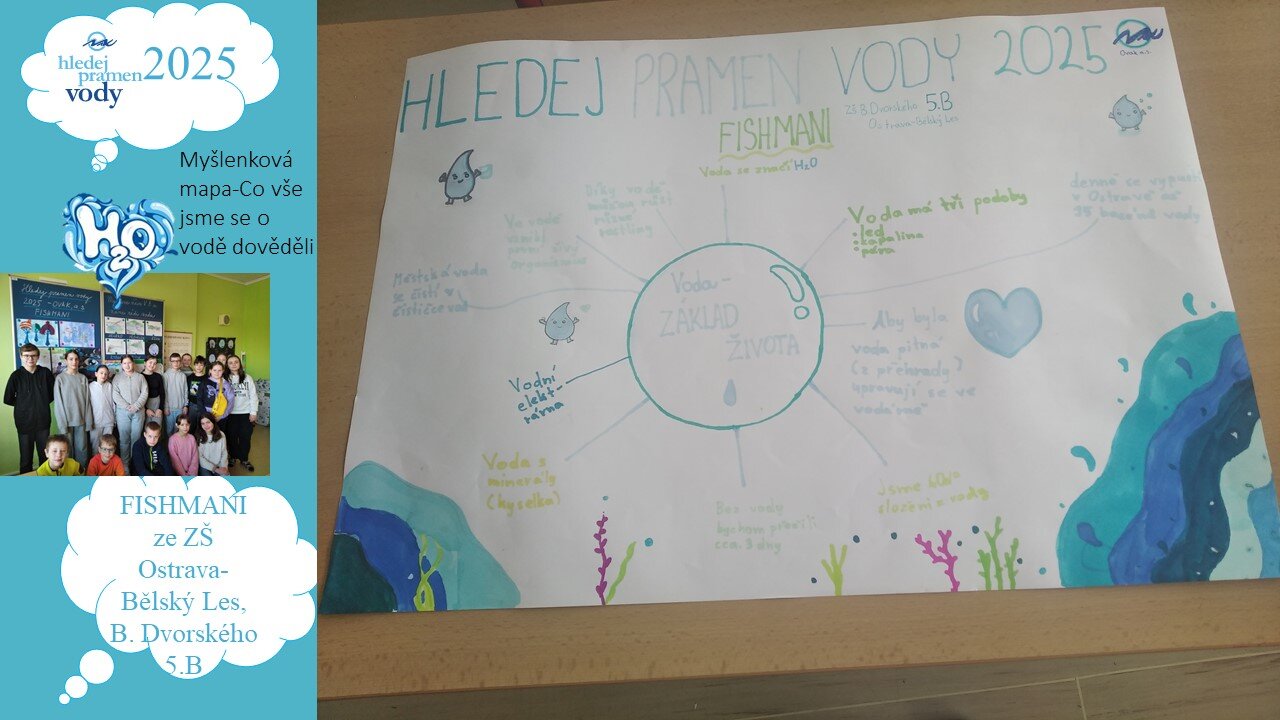 hledej
pramen
vody
2025
Myšlenková
mapa-Co vše
jsme se o
vodě dověděli
H2O
Hledej pramen vody
2025 - OVAK, a.s
FISHMANI
FISHMANI
ze ZŠ
Ostrava-
Bělský Les,
B. Dvorského
5.B
HLEDEJ PRAMEN VODY 2025
OvaK a.s.
ZŠ B. Dvorského 5.B
Ostrava-Bělský Les
FISHMANI
Voda se značí H2O
Díky vodě
můžou růst
různé
rostliny
Ve vodě
vznikl
první živý
organismus
Městská voda
se čistí v
čističce vod
Vodní
elekt-
rárna
Voda s
minerály
(kyselka)
Bez vody
bychom přežili
cca. 3 dny
Jsme 60%
složeni z vody
Aby byla
voda pitná
(z přehrady)
upravují se ve
vodárně
denně se vypustí
v Ostravě až
35 bazénů vody
Voda má tři podoby
led
kapalina
pára
Voda-
ZÁKLAD
ŽIVOTA